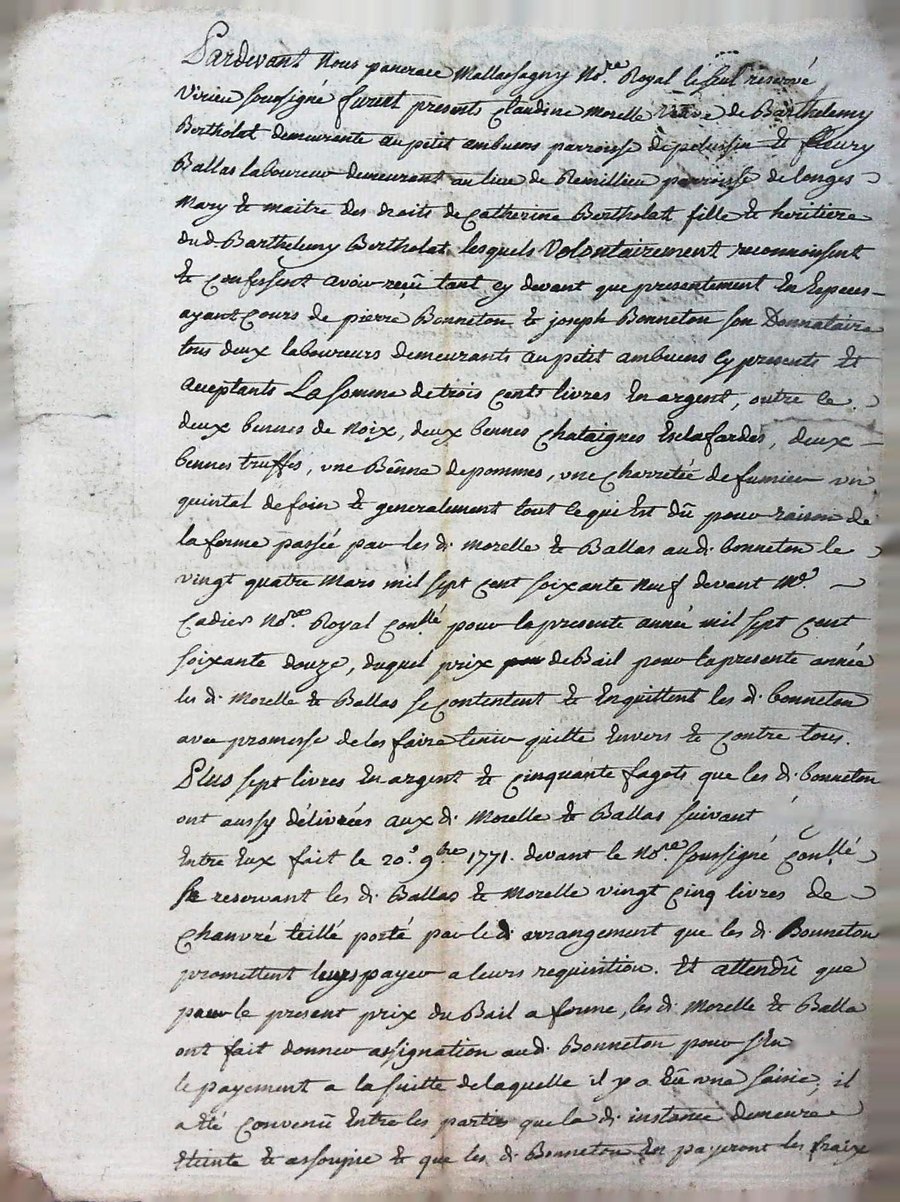 Pardevant Nous pancrace Mallassagny No.re Royal le seul reservé
Virieu soussigné furent presents Claudine Morelle veuve de Barthelemy
Bertholat demeurante au petit ambuens parroisse de pelussin & fleury
Ballas laboureur demeurant au lieu de Remillieu parroisse de longes
Mary & maitre des droits de Catherine Bertholat fille & heritiere
dud. Barthelemy Bertholat lesquels volontairement reconnoissent
& confessent avoir reçû tant cy devant que presentement En Especes
ayant Cours de pierre Bonneton & joseph Bonneton son Donnataire
tous deux laboureurs demeurants au petit ambuens cy presents et
acceptants La somme de trois cents livres En argent, outre ce
deux bennes de Noix, deux bennes Chataignes Esclafardes, deux
bennes truffes, vne Bênne de pommes, vne charretée de fumier vn
quintal de foin & generalement tout ce qui Est dû pour raison de
la ferme passée par les d. Morelle & Ballas aud. bonneton le
vingt quatre Mars mil sept cent soixante Neuf devant Me.
Cadier No.re Royal con.llé pour la presente année mil sept cent
soixante douze, duquel prix de Bail pour la presente année
les d. Morelle & Ballas se contentent & Enquittent les d. bonneton
avec promesse de les faire tenir quitte Envers & contre tous.
Plus sept livres En argent & cinquante fagots que les d. bonneton
ont aussy délivrées aux d. Morelle & Ballas suivant
Entre Eux fait le 20.e 9.bre 1771. devant le No.re soussigné con.llé
se reservant les d. Ballas & Morelle vingt cinq livres de
Chanvré teillé porté par led. arrangement que les d. Bonneton
promettent leurs payer a leurs requisition. Et attendû que
pour le present prix du Bail a ferme, les d. Morelle & Balla
ont fait donner assignation aud. Bonneton pour s'En
le payement a la suitte de laquelle il y a Eû vne saisie, il
a Eté Convenû Entre les parties que la d. instance demeure
Eteinte & assoupie & que les d. Bonneton En payeront les fraix